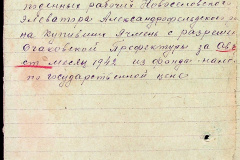 тненных рабочий Новоселовского
элеватора Александрфельдского
на купивший Ячмень с разреши
Очаковской Префектуры за Авгу
ст месяц 1942 из фонда
по государственной цене